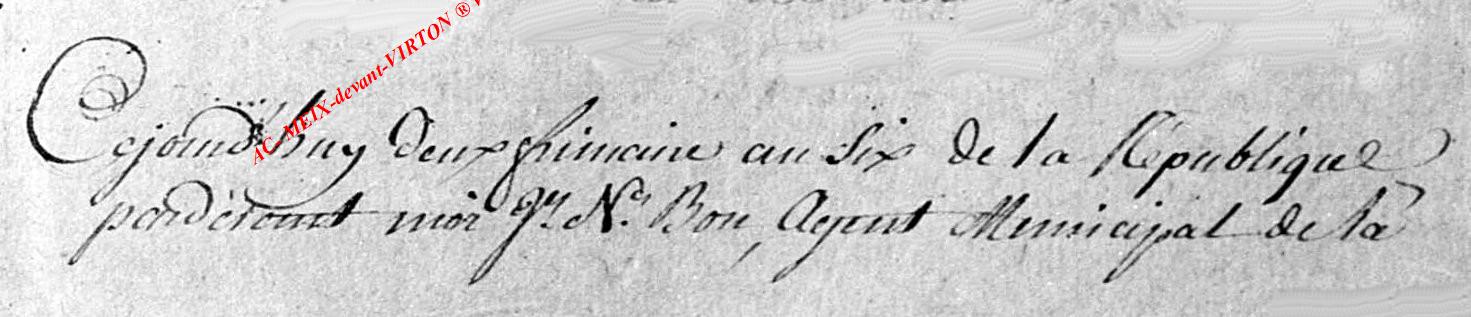 AC MEIX-devant-VIRTON ®
Cejourd'huy deux frimaire an six de la Republique
pardevant moi Jn. Ns. Bon, Agent Municipal de la